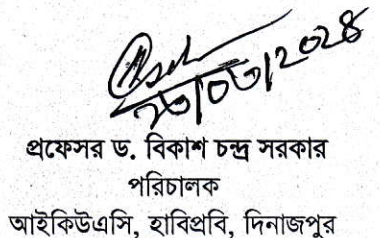 প্রফেসর ড. বিকাশ চন্দ্র সরকার
পরিচালক
আইকিউএসি, হাবিপ্রবি, দিনাজপুর